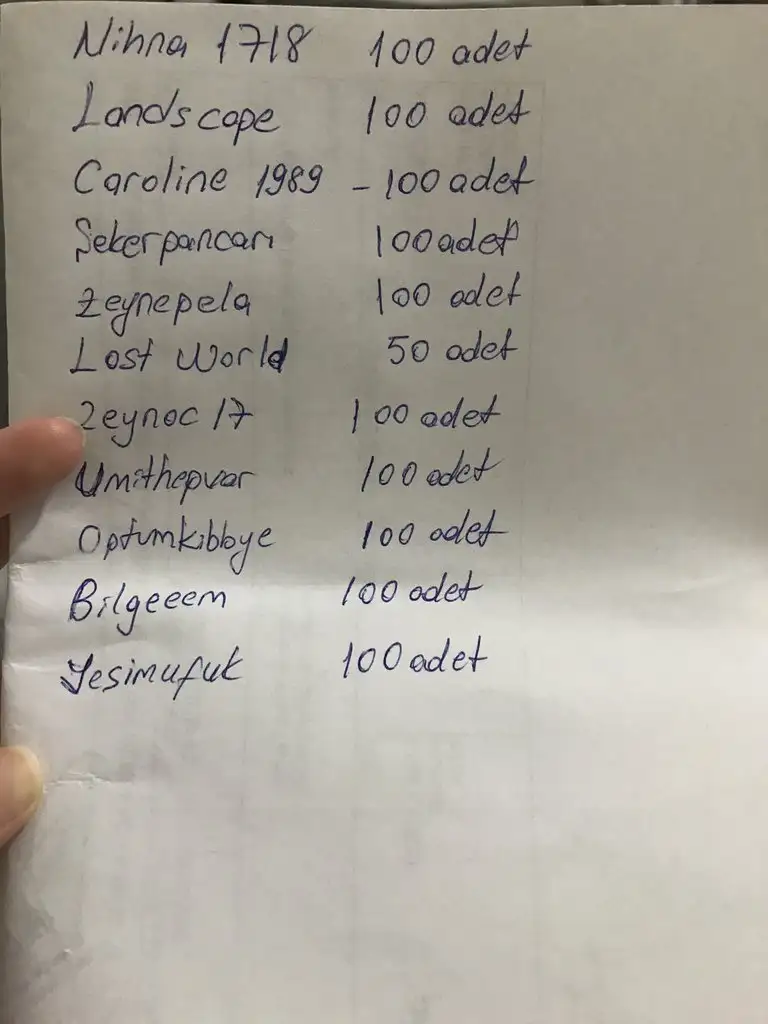 Nihna 1718 100 adet
Landscape 100 adet
Caroline 1989 - 100 adet
Şekerpancarı 100 adet
Zeynepela 100 adet
Lost World 50 adet
Zeynoc 17 100 adet
Umithepvar 100 adet
Optumkibbye 100 adet
Bilgeeem 100 adet
Yesimufuk 100 adet